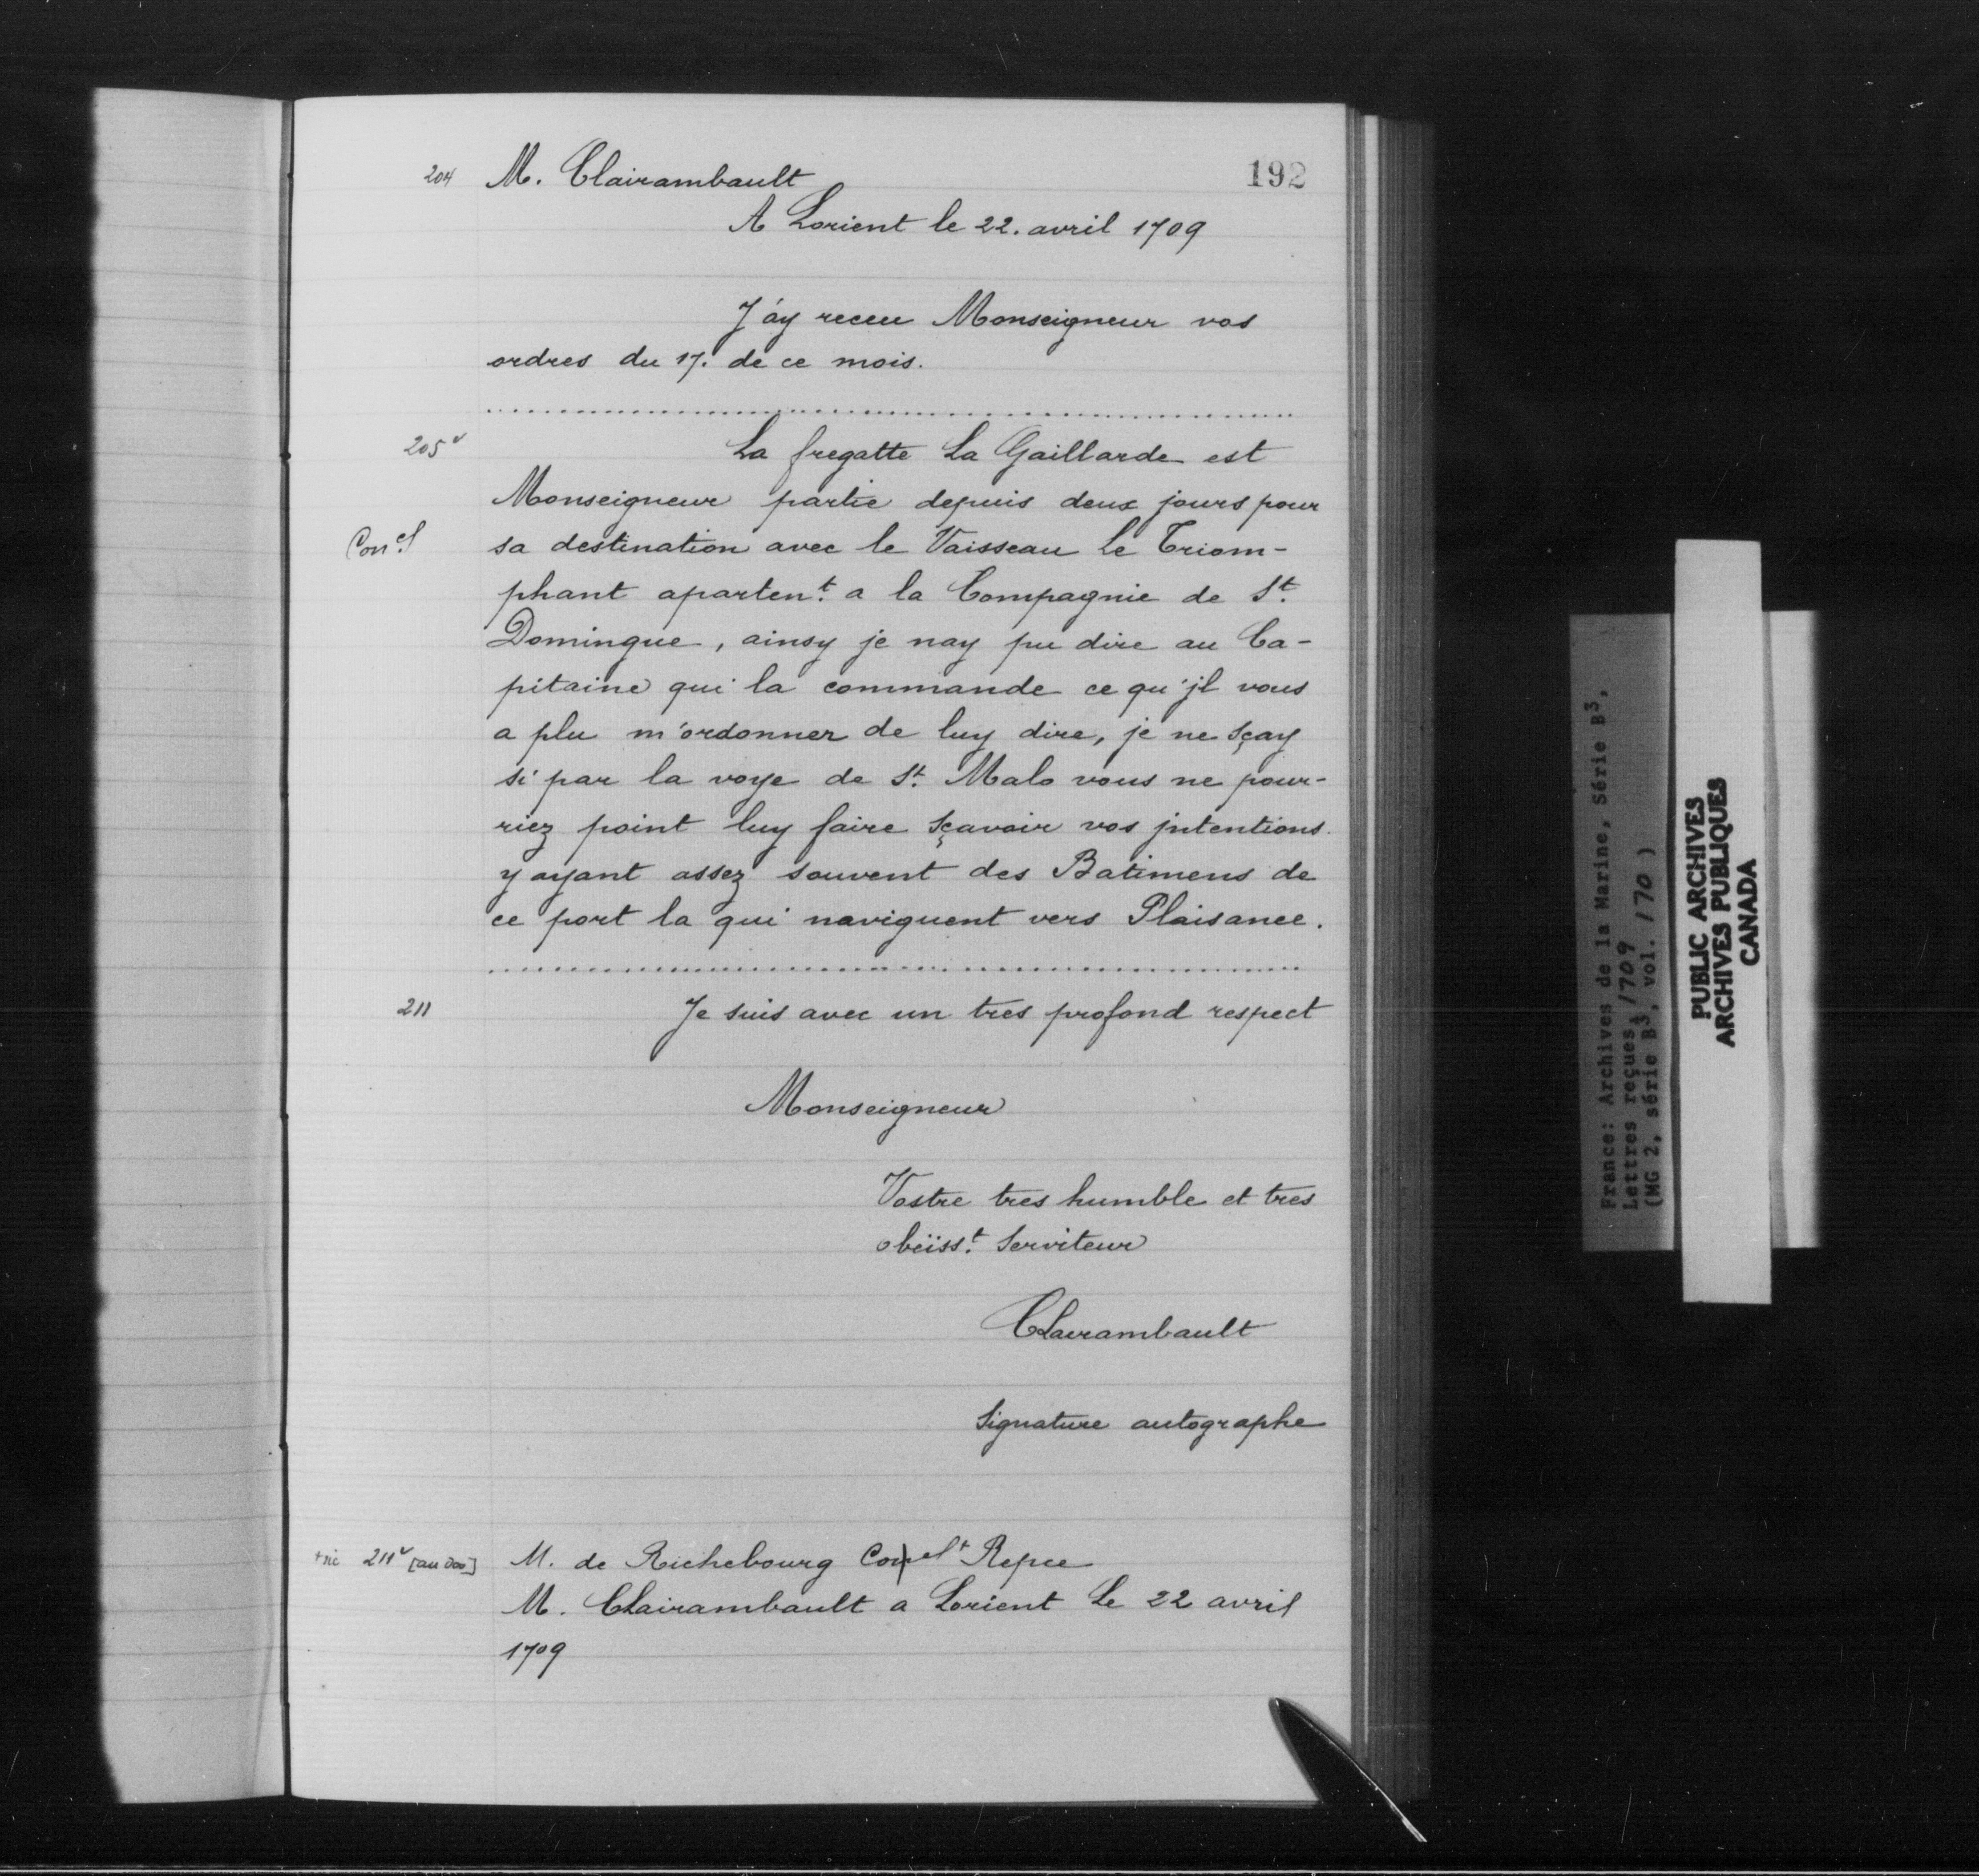 192
204 M. Clairambault
A Lorient le 22. avril 1709
J'ay receu Monseigneur vos
ordres du 17. de ce mois.
205v La fregatte La Gaillarde est
Monseigneur partie depuis deux jours pour
Con.el sa destination avec le Vaisseau Le Triom-
phant aparten.t a la Compagnie de St.
Domingue, ainsy je nay pu dire au Ca-
pitaine qui la commande ce qu'jl vous
a plu m'ordonner de luy dire, je ne sçay
si par la voye de St. Malo vous ne pour-
riez point luy faire sçavoir vos jntentions.
y ayant assez souvent des Batimens de
ce port la qui naviguent vers Plaisance.
211 Je suis avec un tres profond respect
Monseigneur
Vostre tres humble et tres
obeïss.t Serviteur
Clairambault
Signature autographe
211v [au dos] M. de Richebourg
M. Clairambault a Lorient Le 22 avril
1709
France: Archives de la Marine, Série B3,
Lettres reçues, 1709
(MG 2, série B3, vol. 170 )
PUBLIC ARCHIVES
ARCHIVES PUBLIQUES
CANADA